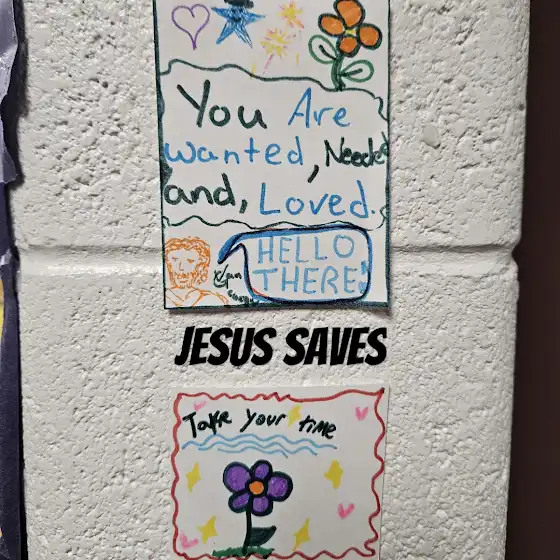 You Are
wanted, Needed
and, Loved.
HELLO
THERE!
JESUS SAVES
Take your time